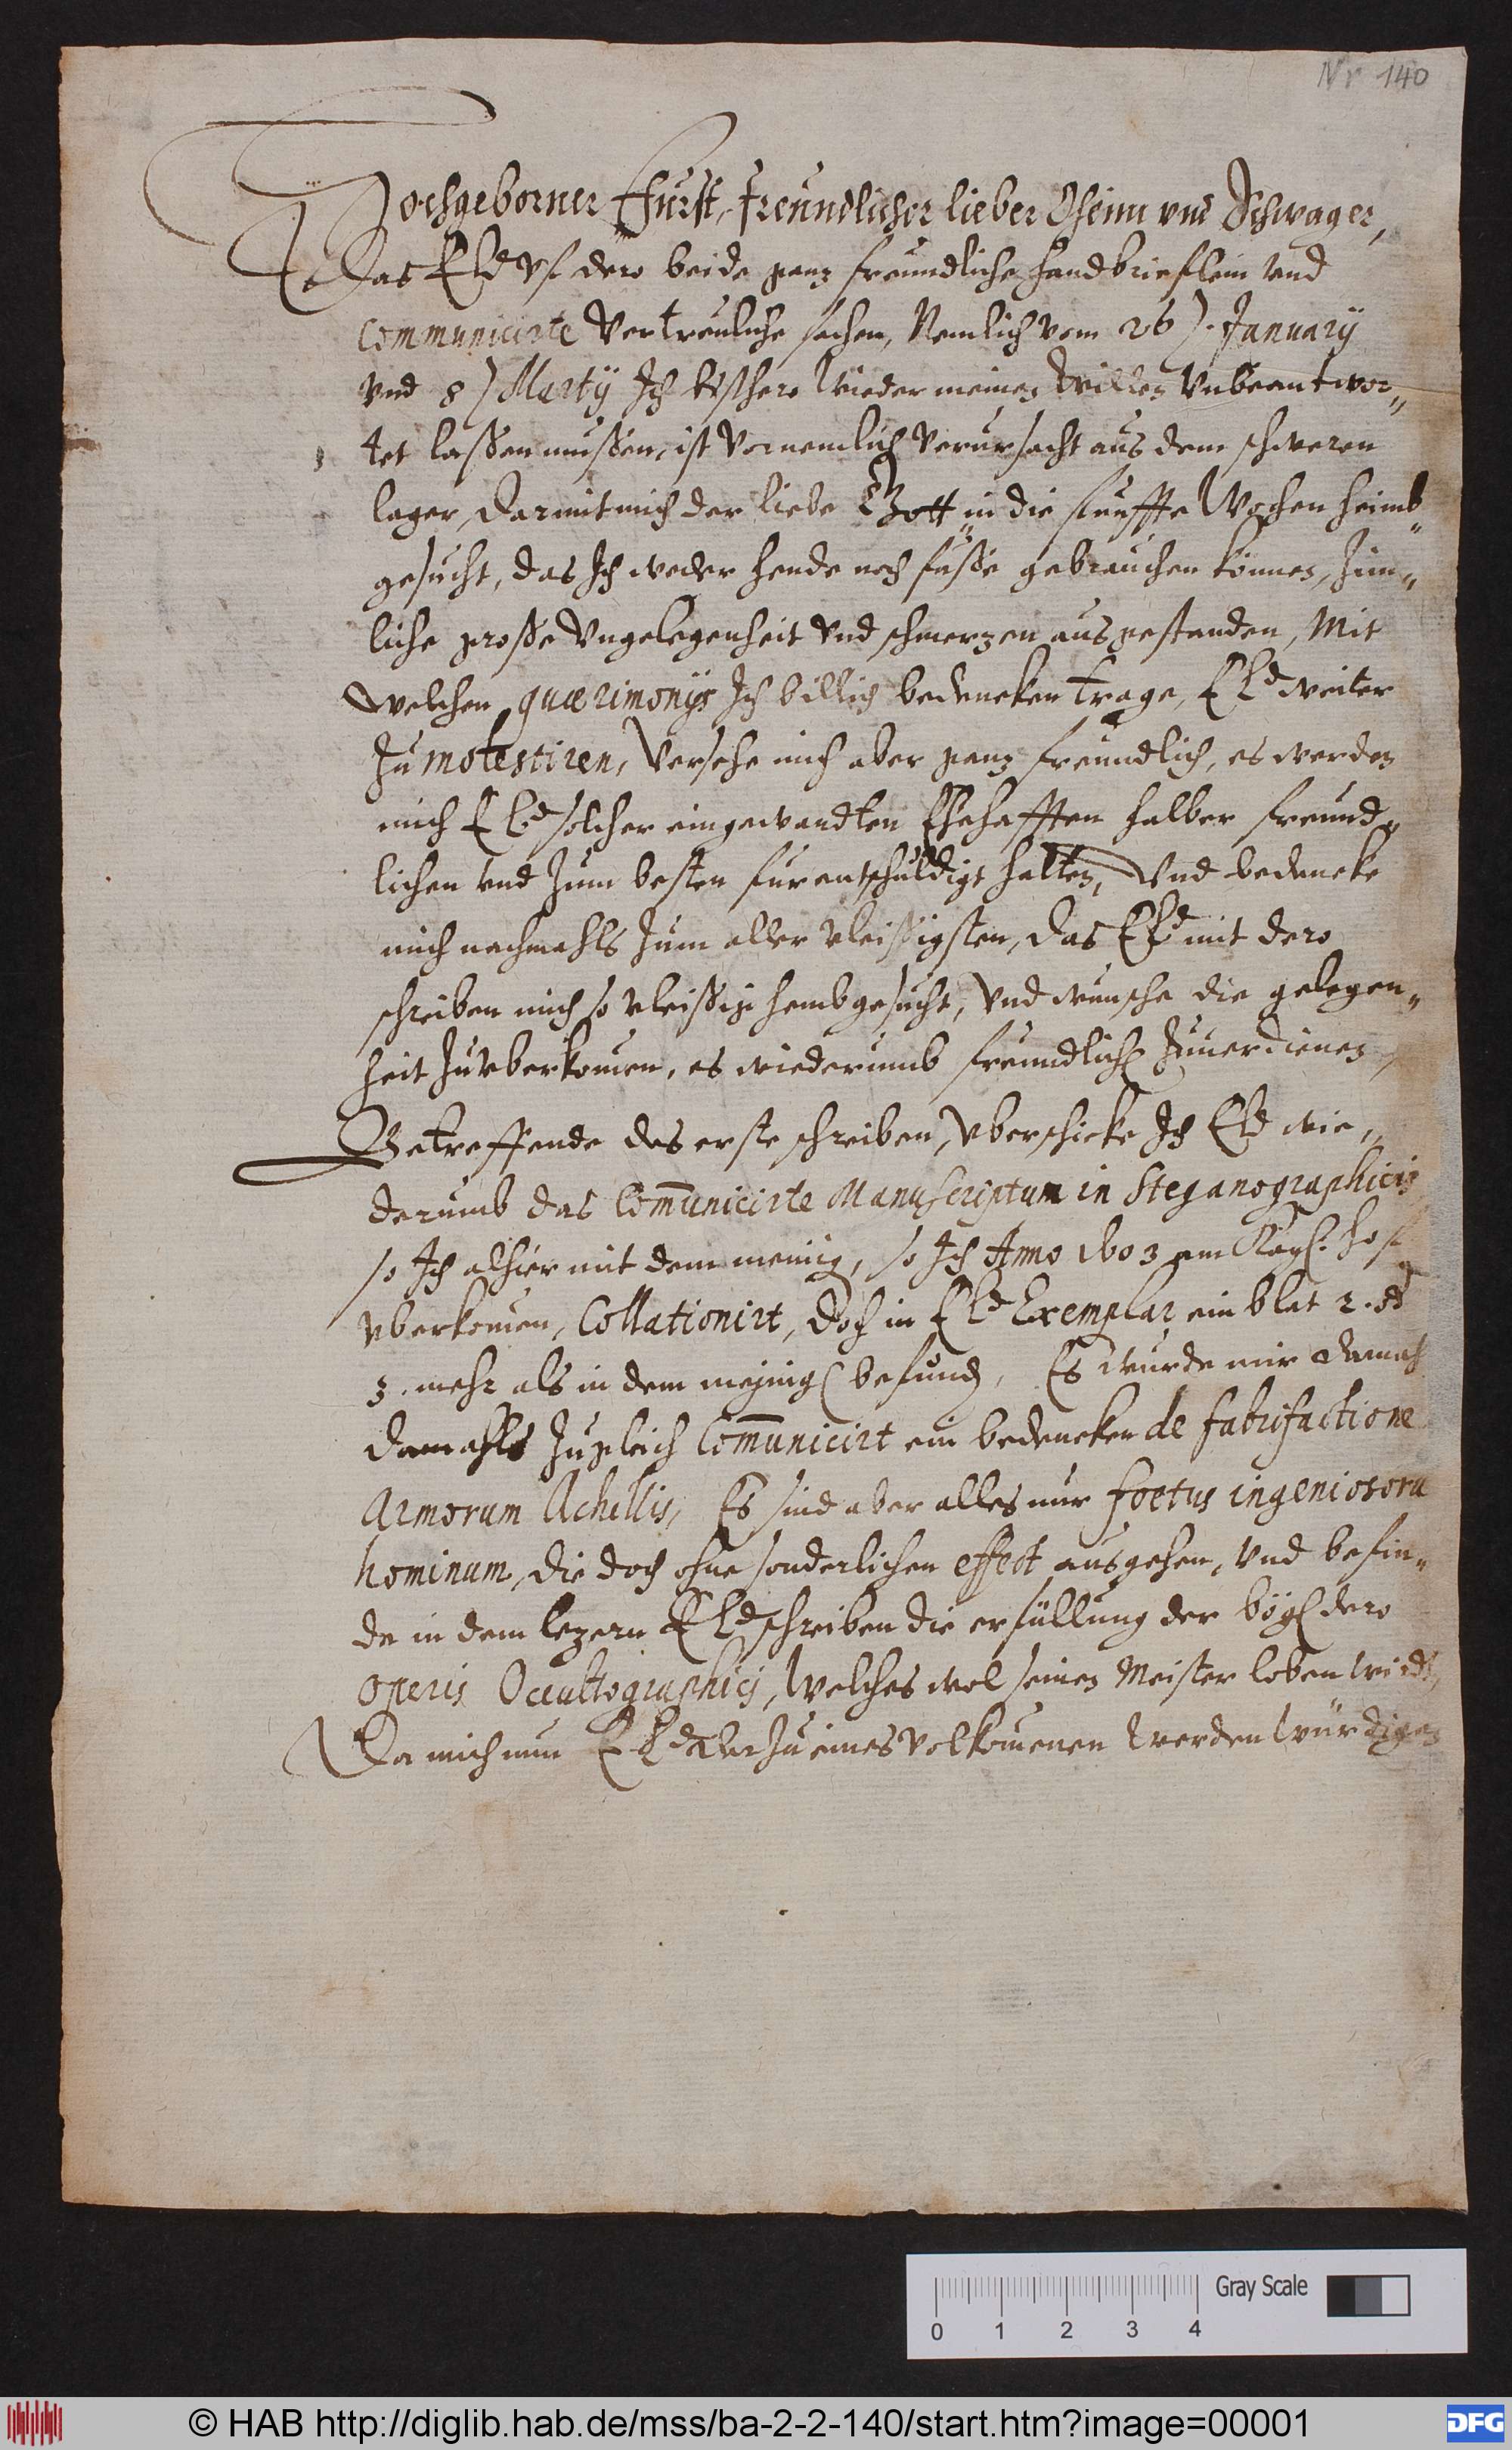 Nr 140
Hochgeborner Furst, freundlicher lieber Oheim vnd Schwager,
Das E Ld vf dero beide ganz freundliche handbrieflein vnd
communicirte vertreuliche sachen, Nemlich vom 26). January
vnd 8) Martij Ich bishero wieder meinen willen vnbeantwor„
tet laßen mußen, ist vornemlich verursacht aus dem schweren
lager, Darmit mich der liebe Gott in die funffte Wochen heimb„
gesucht, das Ich weder hende noch fuße gebrauchen können, Zim„
liche große vngelegenheit vnd schmerzen ausgestanden, Mit
welchen quærimonijs Ich billich bedencken trage, E Ld weiter
Zu molestiren, Versehe mich aber ganz freundlich, es werden
mich E Ld solcher eingewandten Ehehafften halber freund„
lichen vnd Zum besten fur entschuldigt halten, Vnd bedencke
mich nachmahls Zum aller vleißigsten, das E Ld mit dero
schreiben mich so vleißig hembgesucht, vnd wunsche die gelegen„
heit Zu vberkomen, es wiederumb freundlich Zuuerdienen,
Betreffende das erste schreiben, vberschicke Ich E Ld wie„
derumb das Comunicirte Manuscriptum in Steganographicis
so Ich alhier mit dem meinig, so Ich Anno 1603 am Kays: hof
vberkomen, Collationirt, Doch in E Ld Exemplar ein blat 2. od
3. mehr als in dem meinig befund, Es wurde mir damah
damahls Zugleich Comunicirt ein bedencken de fabrifactione
Armorum Achillis, Es sind aber alles nur foetus ingeniosoru
hominum, die doch ohne sonderlichen effect ausgehen, vnd befin„
de in dem lezern E Ld schreiben die erfüllung der bög dero
operis Occultographici, Welches wol seinen Meister loben wirdt,
Da mich nun E Ld Zu eines volkomenen werden würdigen
0 1 2 3 4 Gray Scale
© HAB http://diglib.hab.de/mss/ba-2-2-140/start.htm?image=00001
DFG